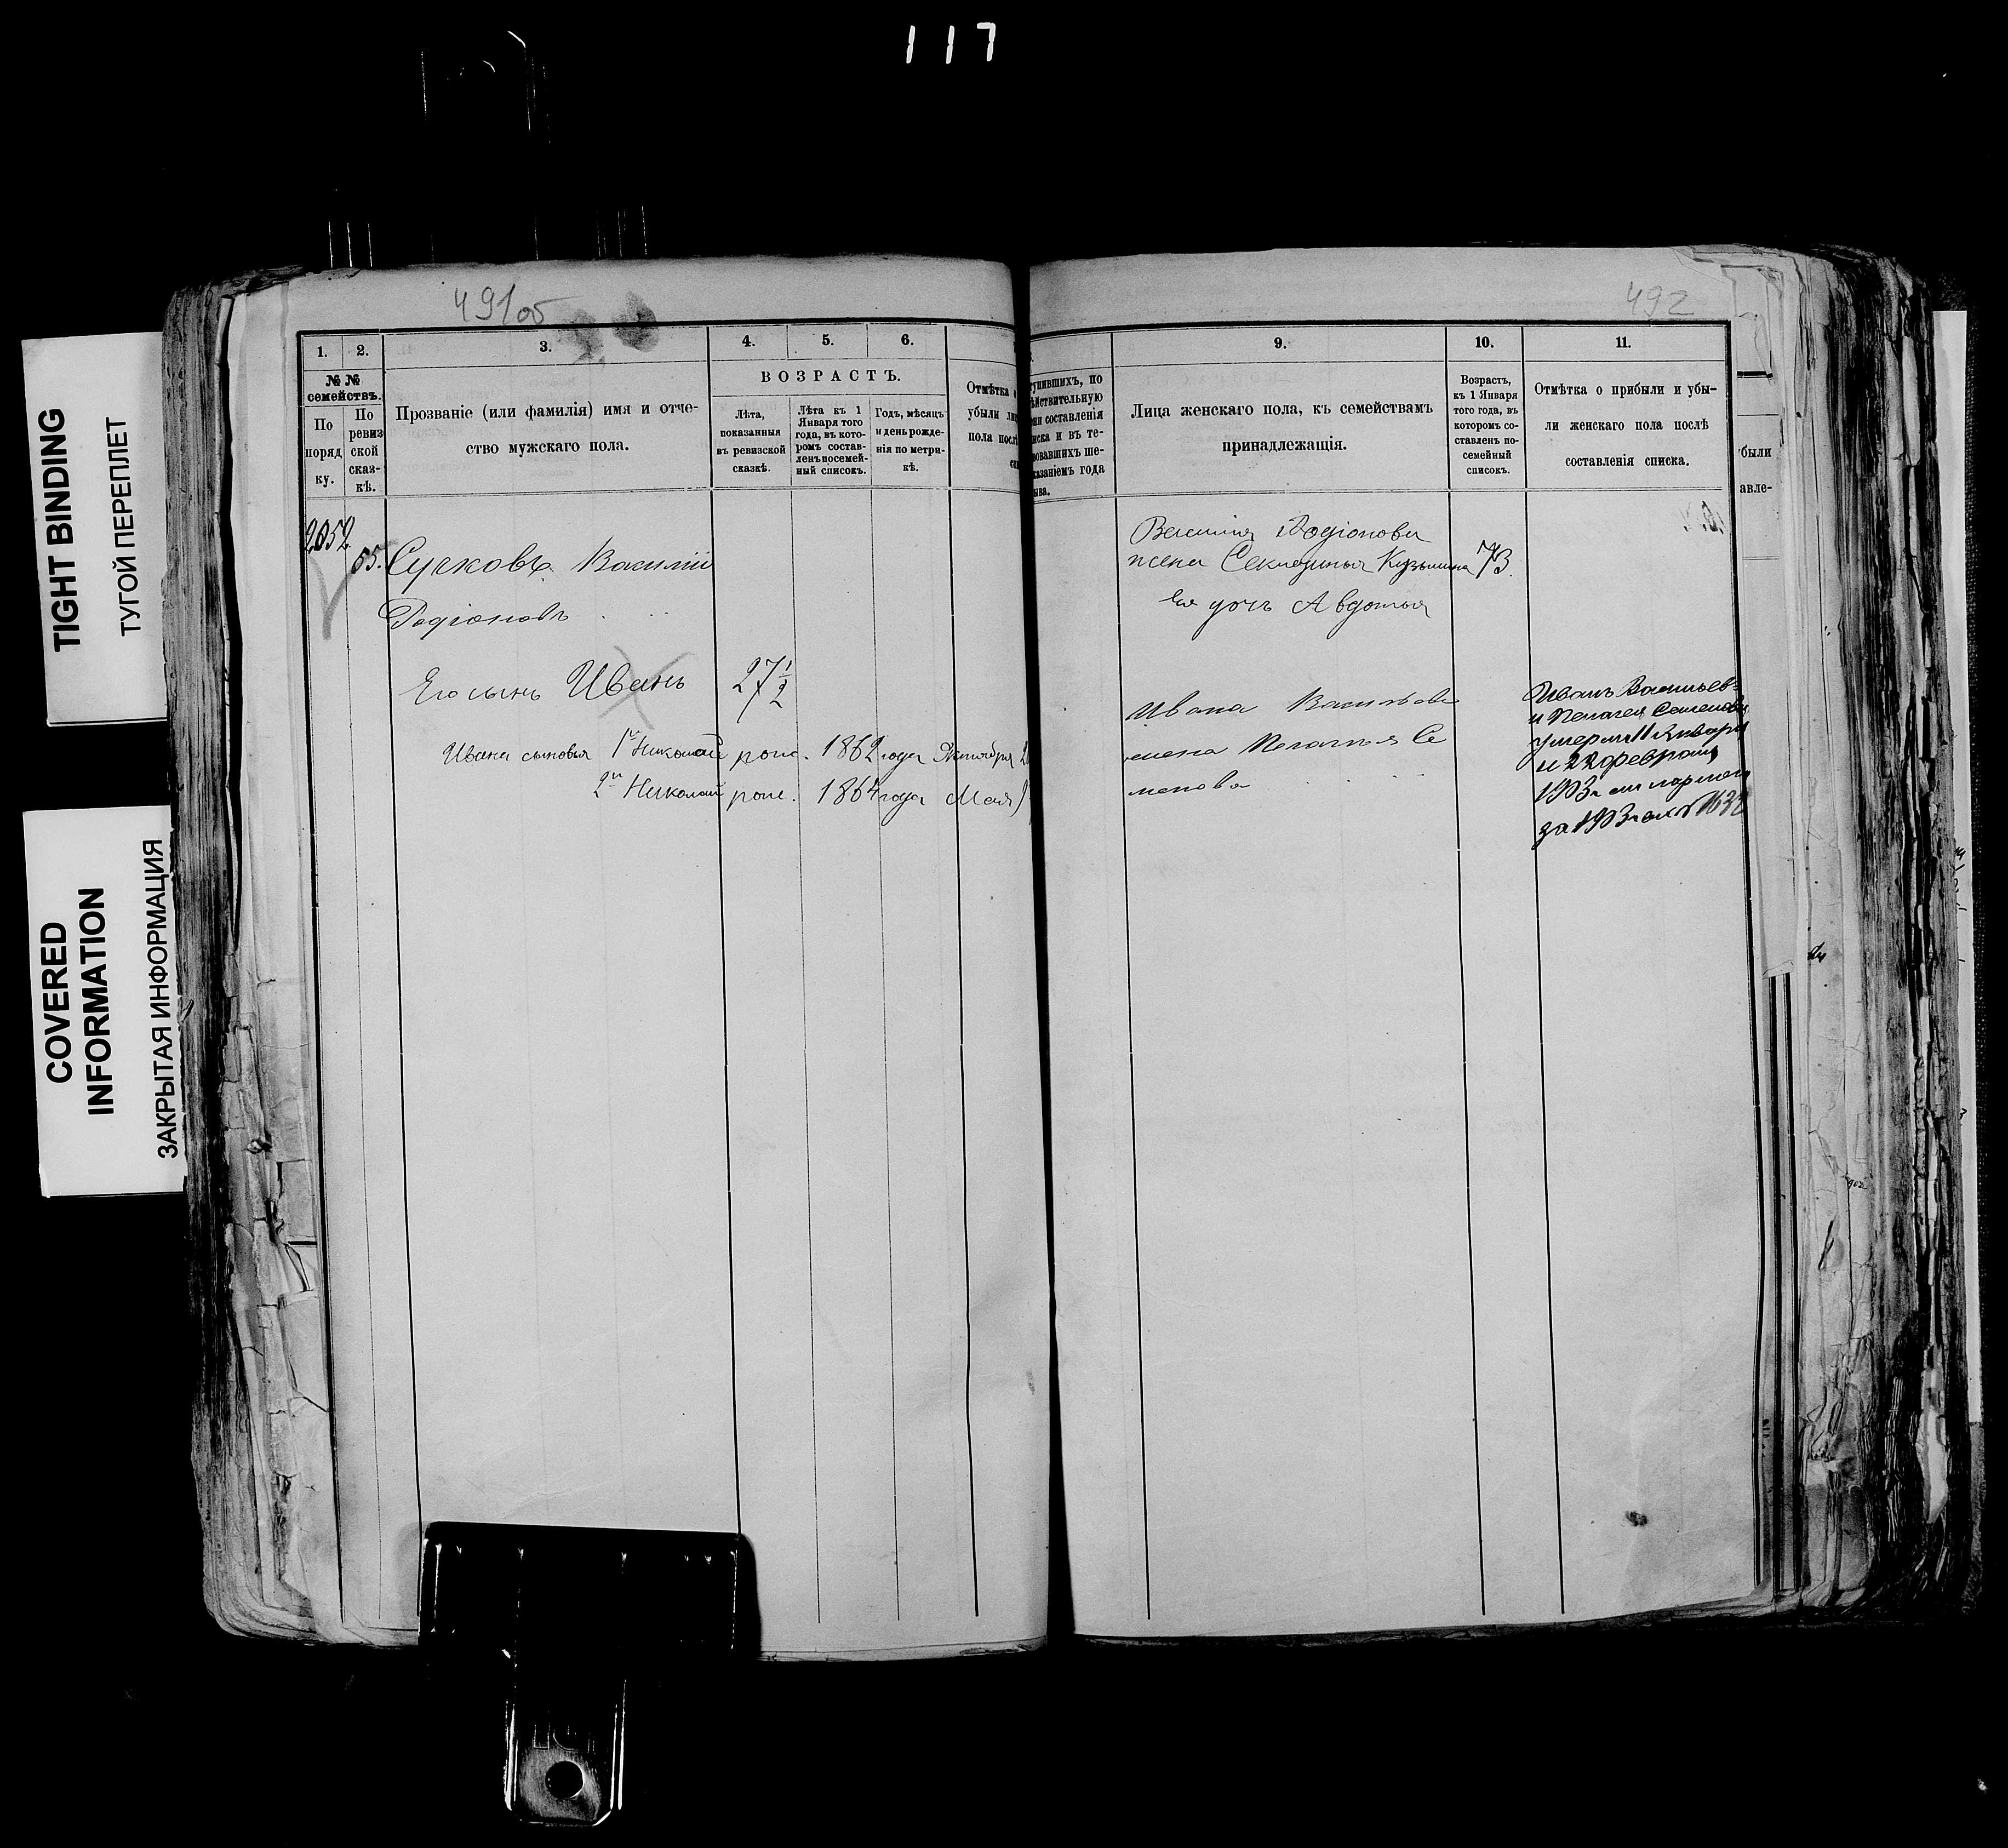 117
TIGHT BINDING
ТУГОЙ ПЕРЕПЛЕТ
COVERED
INFORMATION
ЗАКРЫТАЯ ИНФОРМАЦИЯ
491об
1.
2.
3.
4.
5.
6.
№ №
семействъ.
По
поряд
ку.
По
ревиз
ской
сказ-
кѣ.
Прозваніе (или фамилія) имя и отче-
ство мужскаго пола.
ВОЗРАСТЪ.
Лѣта,
показанныя
въ ревизской
сказкѣ.
Лѣта къ 1
Января того
года, въ кото-
ромъ состав-
ленъ посемей-
ный списокъ.
Годъ, мѣсяцъ
и день рожде-
нія по метри-
кѣ.
Отмѣтка о
убыли ли
пола посл
2052
65.
Сурковъ Василій
Родіоновъ
Его сынъ Иванъ 27 1/2
Ивана сыновья 1й Николай рож. 1862 года Октября 2
2й Николай рож. 1864 года Мая 9
492
9.
10.
11.
тупившихъ, по
йствительную
ни составленія
иска и въ те-
овавшихъ ше-
казаніемъ года
ыва.
Лица женскаго пола, къ семействамъ
принадлежащія.
Возрастъ,
къ 1 Января
того года, въ
которомъ со-
ставленъ по-
семейный
списокъ.
Отмѣтка о прибыли и убы-
ли женскаго пола послѣ
составленія списка.
были
авле-
Василія Родіонова
жена Секлетинья Кузьмина 73.
Ея дочь Авдотья
Ивана Васильева
жена Пелагея Се
менова
Иванъ Васильев
и Пелагея Семенова
умерли 11 Января
и 22 февраля
1903г
за 1903г